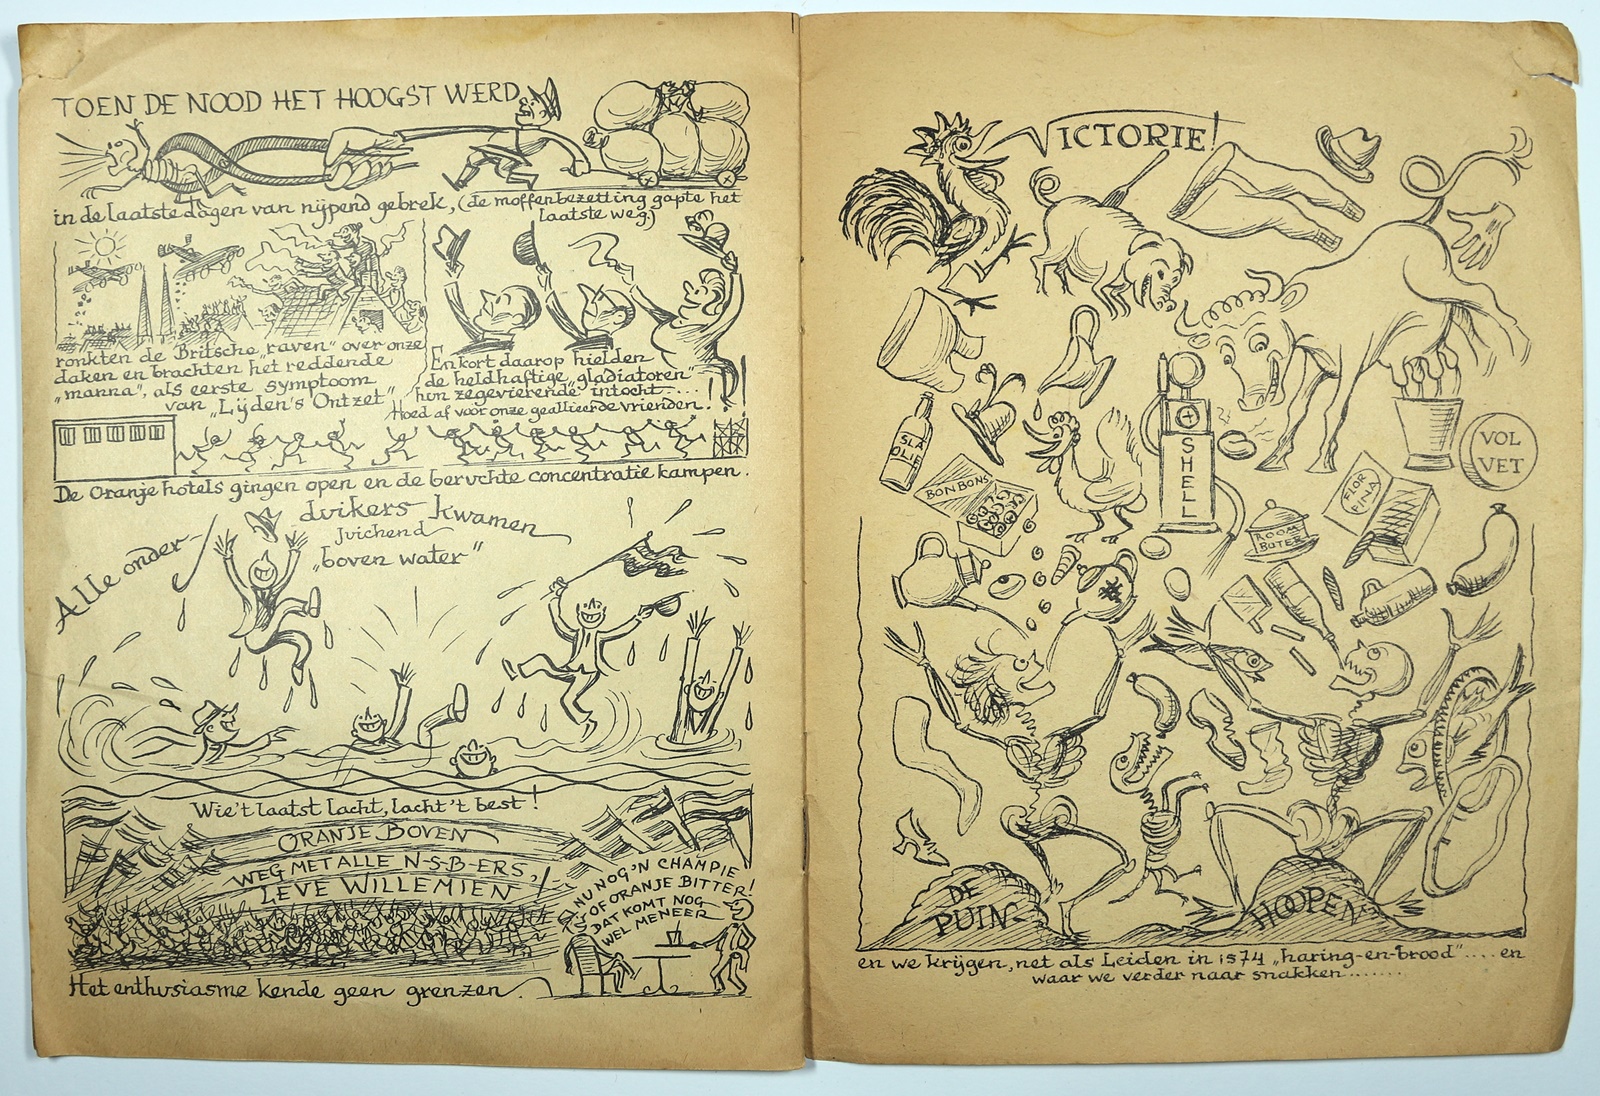 TOEN DE NOOD HET HOOGST WERD
in de laatste dagen van nijpend gebrek, (de moffenbezetting gapte het
laatste weg.)
ronkten de Britsche „raven" over onze
daken en brachten het reddende
„manna", als eerste symptoom
van „Lijden's Ontzet"
En kort daarop hielden
de heldhaftige „gladiatoren"
hun zegevierende intocht....
Hoed af voor onze geallieerde vrienden!
De Oranje hotels gingen open en de beruchte concentratie kampen.
Alle onder-
duikers kwamen
Juichend
„boven water"
Wie 't laatst lacht, lacht 't best!
ORANJE BOVEN
WEG MET ALLE N-S-B-ERS,
LEVE WILLEMIEN!
NU NOG 'N CHAMPIE
OF ORANJE BITTER!
DAT KOMT NOG
WEL MENEER
Het enthusiasme kende geen grenzen.
VICTORIE!
SLA
OLIE
BONBONS
SHELL
VOL
VET
FLOR
FINA
ROOM
BOTER
DE
PUIN-
HOOPEN
en we krijgen, net als Leiden in 1574 „haring-en-brood".... en
waar we verder naar snakken........